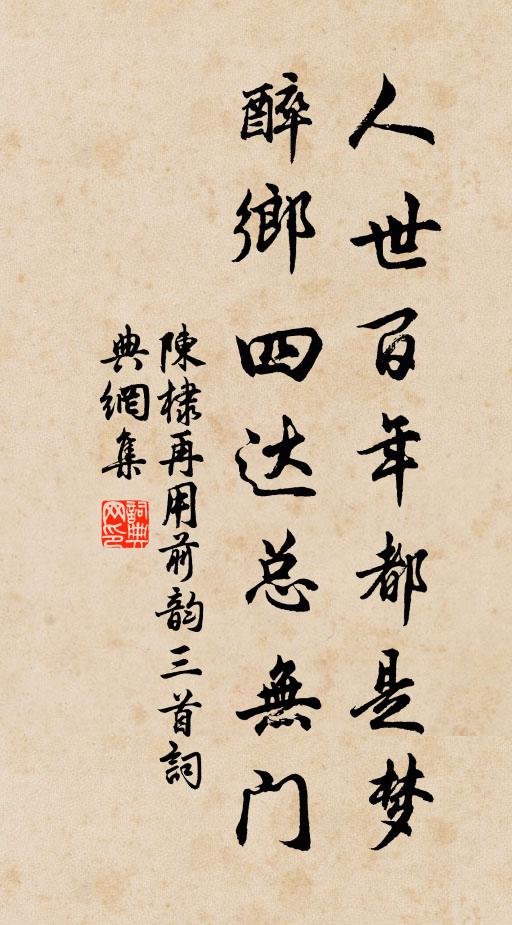 人世百年都是梦
醉鄉四达总無门
陳棣再用前韵三首詞
典網集
詞典網印